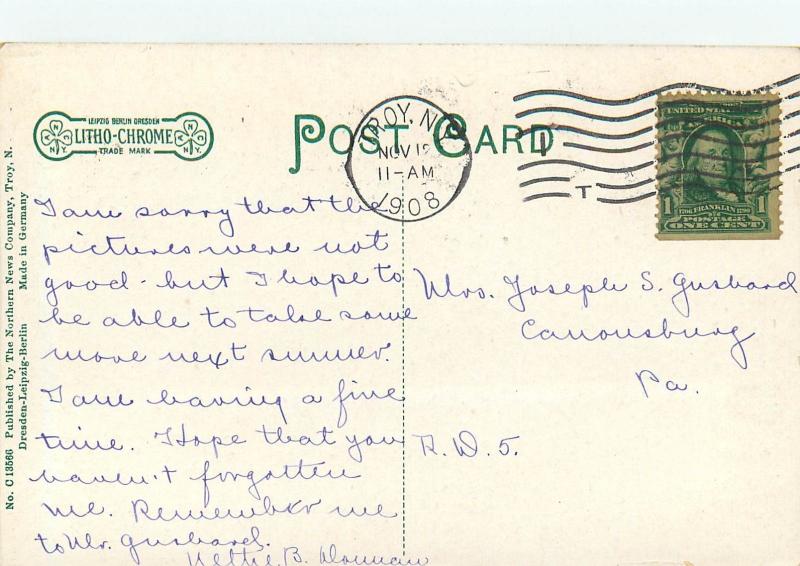 LEIPZIG BERLIN DRESDEN
LITHO-CHROME
TRADE MARK
N.Y.
N.Y.
POST CARD
TROY, N.Y.
NOV 1
11-AM
1908
T
1 1
FRANKLIN
POSTAGE
ONE CENT
No. C 13566 Published by The Northern News Company, Troy, N.
Dresden-Leipzig-Berlin Made in Germany
I am sorry that the
pictures were not
good - but I hope to
be able to take some
more next summer.
I am having a fine
time. Hope that you
haven't forgotten
me. Remember me
to Mr. Gusbard.
Nettie B.
Mrs. Joseph S. Gusbard
Canonsburg
Pa.
R. D. 5.